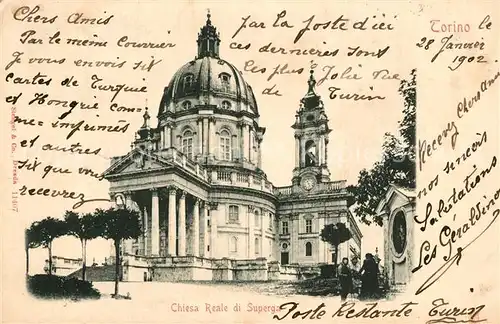 Chers Amis
Par le même Courrier
Je vous envois six
cartes de Turquie
et Hongrie comme imprimés
et autres
S'il que vous
recevrez
par la poste d'ici
ces dernières sont
les plus Jolie Vue
de Turin
Torino le
28 Janvier
1902
Recevez Chers Amis
nos sincers
Salutations
Les Géraldino
Chiesa Reale di Superga
Poste Restante Turin